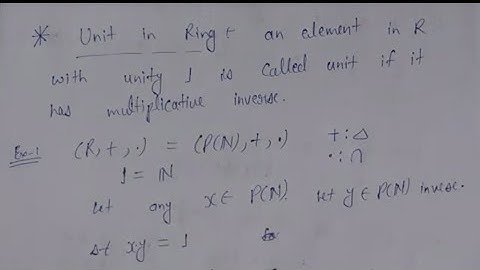 * Unit in Ring : an element in R
with unity 1 is called unit if it
has multiplicative inverse.
Ex-1 (R, +, ·) = (P(N), +, ·) + : Δ
1 = ℕ · : ∩
let any x ∈ P(N). let y ∈ P(N) inverse.
st xy = 1